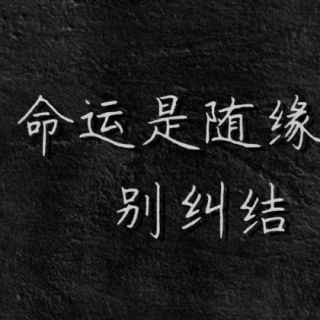 命运是随缘
别纠结